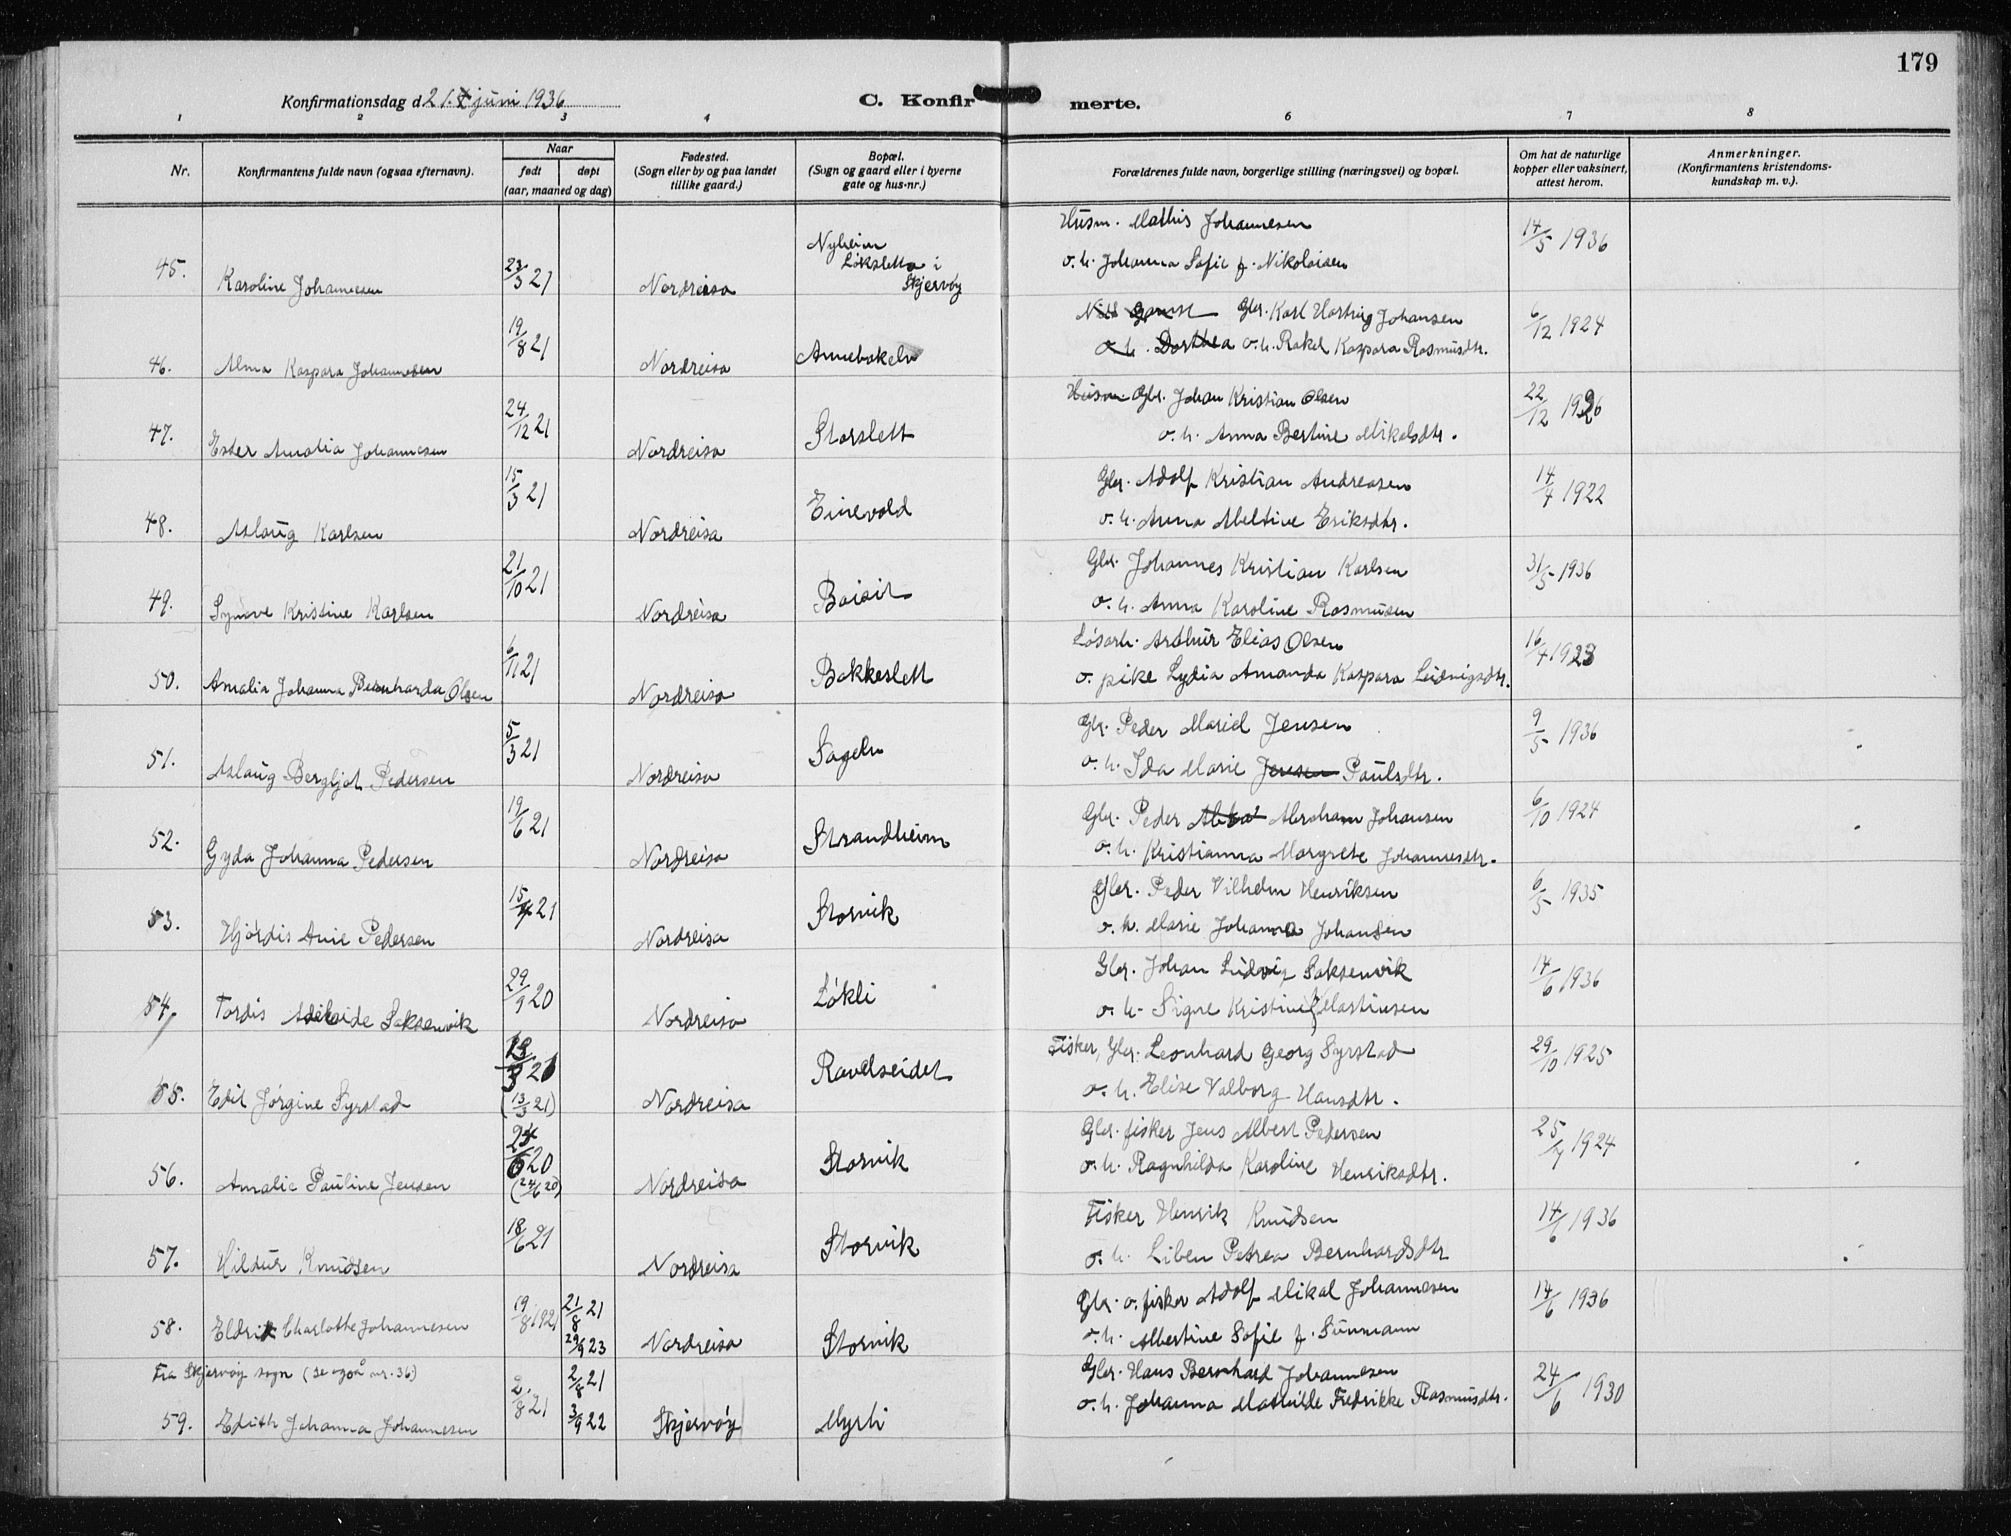 179
Konfirmationsdag d 21. juni 1936
C. Konfirmerte.
1 2 3 4 6 7 8
Nr.
Konfirmantens fulde navn (ogsaa efternavn).
Naar
født
døpt
(aar, maaned og dag)
Fødested.
(Sogn eller by og paa landet
tillike gaard.)
Bopæl.
(Sogn og gaard eller i byerne
gate og hus-nr.)
Forældrenes fulde navn, borgerlige stilling (næringsvei) og bopæl.
Om hat de naturlige
kopper eller vaksinert,
attest herom.
Anmerkninger.
(Konfirmantens kristendoms-
kundskap m. v.).
45. Karoline Johannesen 23/3 21 Nordreisa Nyheim Løkslett i Skjervøy
Husm. Mathis Johannesen 14/5 1936
o. h. Johanna Sofie f. Nikolaisen
46. Alma Kaspara Johannesen 19/8 21 Nordreisa
Gbr. Karl Hartvig Johansen 6/12 1924
o. h. Dorthea o. h. Rakel Kaspara Rasmusdtr.
47. Ester Amalia Johannesen 24/12 21 Nordreisa Storslett
Husm Gbr. Johan Kristian Olsen 22/12
o. h. Anna Bertine Mikalsdtr.
48. Aslaug Karlsen 15/3 21 Nordreisa Einevold
Gbr. Adolf Kristian Andreasen 14/4 1922
o. h. Anna Meltine Eriksdtr.
49. Synøve Kristine Karlsen 21/10 21 Nordreisa Baisit
Gbr. Johannes Kristian Karlsen 31/5 1936
o. h. Anna Karoline Rasmusen
50. Amalia Johanna Bernharda Olsen 6/11 21 Nordreisa Bakkeslett
Løsarb. Arthur Elias Olsen 16/4 1923
o. pike Lydia Amanda Kaspara Leidvigsdtr.
51. Aslaug Bergljot Pedersen 5/3 21 Nordreisa Sagelv
Gbr. Peder Mariel Jensen 9/5 1936
o. h. Ida Marie Jensen Paulsdtr.
52. Gyda Johanna Pedersen 19/6 21 Nordreisa Strandheim
Gbr. Peder Abraham Johansen 6/10 1924
o. h. Kristianna Margrete Johannesdtr.
53. Hjørdis Anie Pedersen 15/4 21 Nordreisa Storvik
Gbr. Peder Vilhelm Henriksen 6/5 1935
o. h. Marie Johanna Johansen
54. Tordis Adelaide Saksenvik 29/9 20 Nordreisa Løkli
Gbr. Johan Ludvig Saksenvik 14/6 1936
o. h. Signe Kristine Martinsen
55. Edit Jørgine Syrstad 13/3 21 (13/3 21) Nordreisa Ravelseidet
Fisker, Gbr. Leonhard Georg Syrstad 29/10 1925
o. h. Elise Valborg Hansdtr.
56. Amalie Pauline Jensen 24/6 20 (24/6 20) Nordreisa Storvik
Gbr. fisker Jens Albert Pedersen 25/7 1924
o. h. Ragnhilda Karoline Henriksdtr.
57. Hildur Knudsen 18/6 21 Nordreisa Storvik
Fisker Henrik Knudsen 14/6 1936
o. h. Liben Petrea Bernhardsdtr
58. Eldrid Charlotte Johannesen 19/8 1921 21/8 21 29/9 23 Nordreisa Storvik
Gbr. o. fisker Adolf Mikal Johannesen 14/6 1936
o. h. Albertine Sofie f. Sunmann
Fra Skjervøy sogn (se også nr. 36)
59. Edith Johanna Johannesen 2/8 21 2/8 21 3/9 22 Skjervøy Myrli
Gbr. Hans Bernhard Johannesen 24/6 1930
o. h. Johanna Mathilde Fredrikke Rasmusdtr.